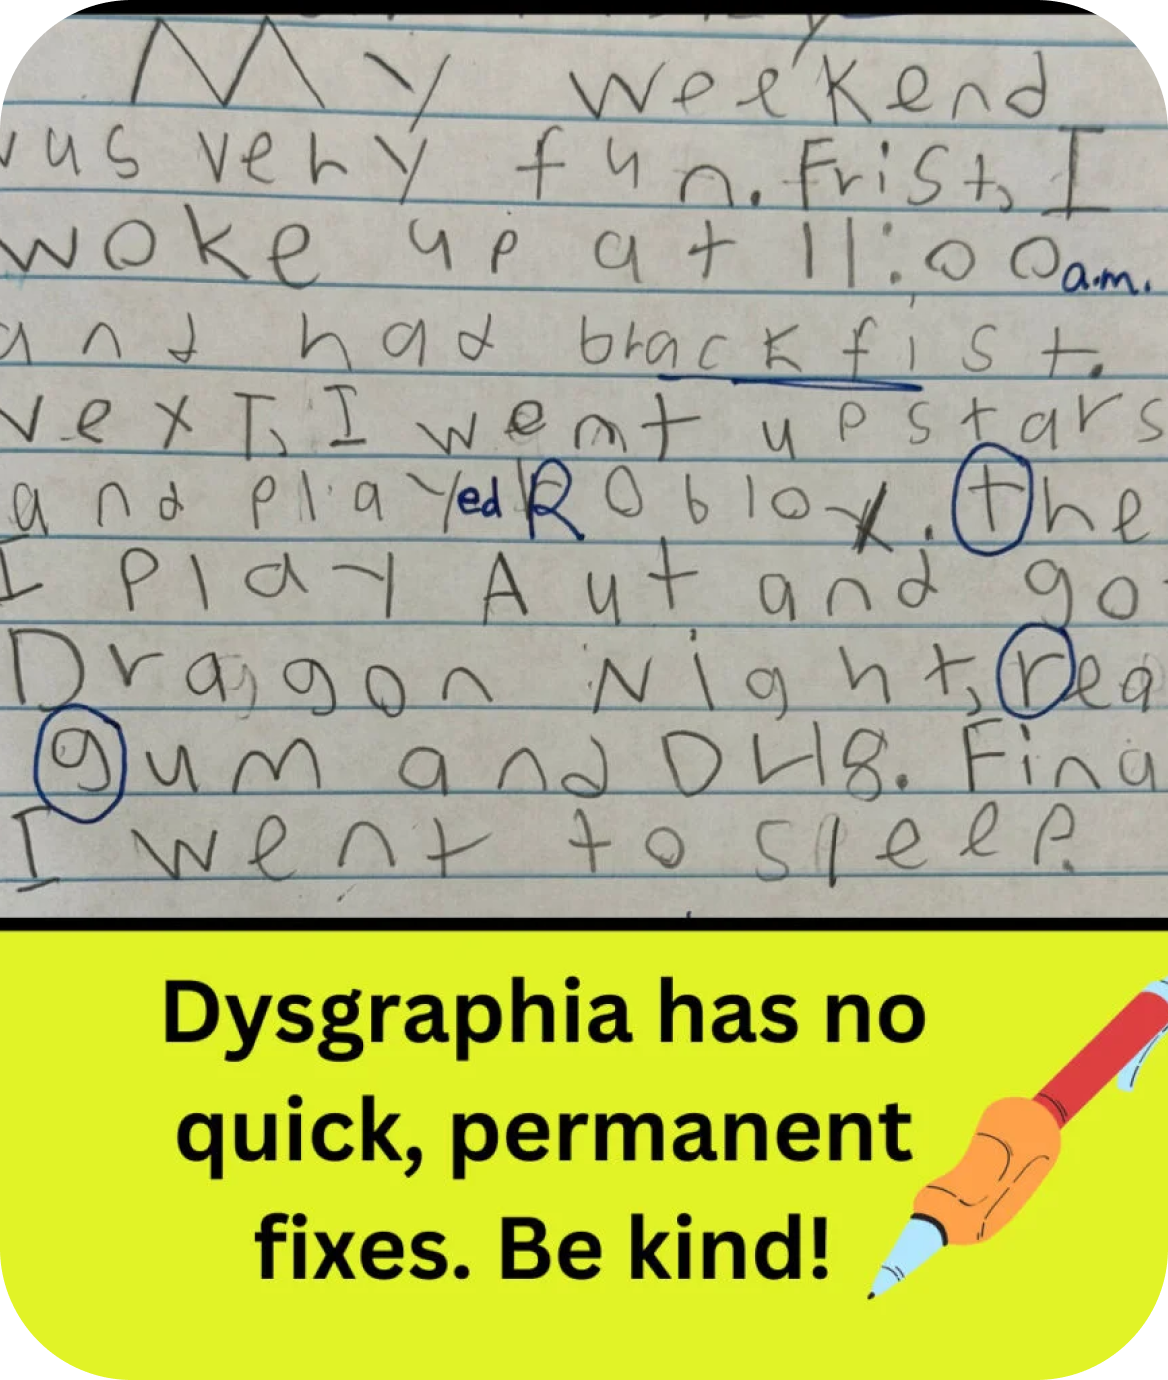 My weekend
wus very fun. Frist, I
woke up at 11:00 a.m.
and had brackfist.
Next, I went upstars
and played Roblox. the
I play Aut and go
Dragon Night, rea
gum and DH8. Fina
I went to sleep.
Dysgraphia has no
quick, permanent
fixes. Be kind!